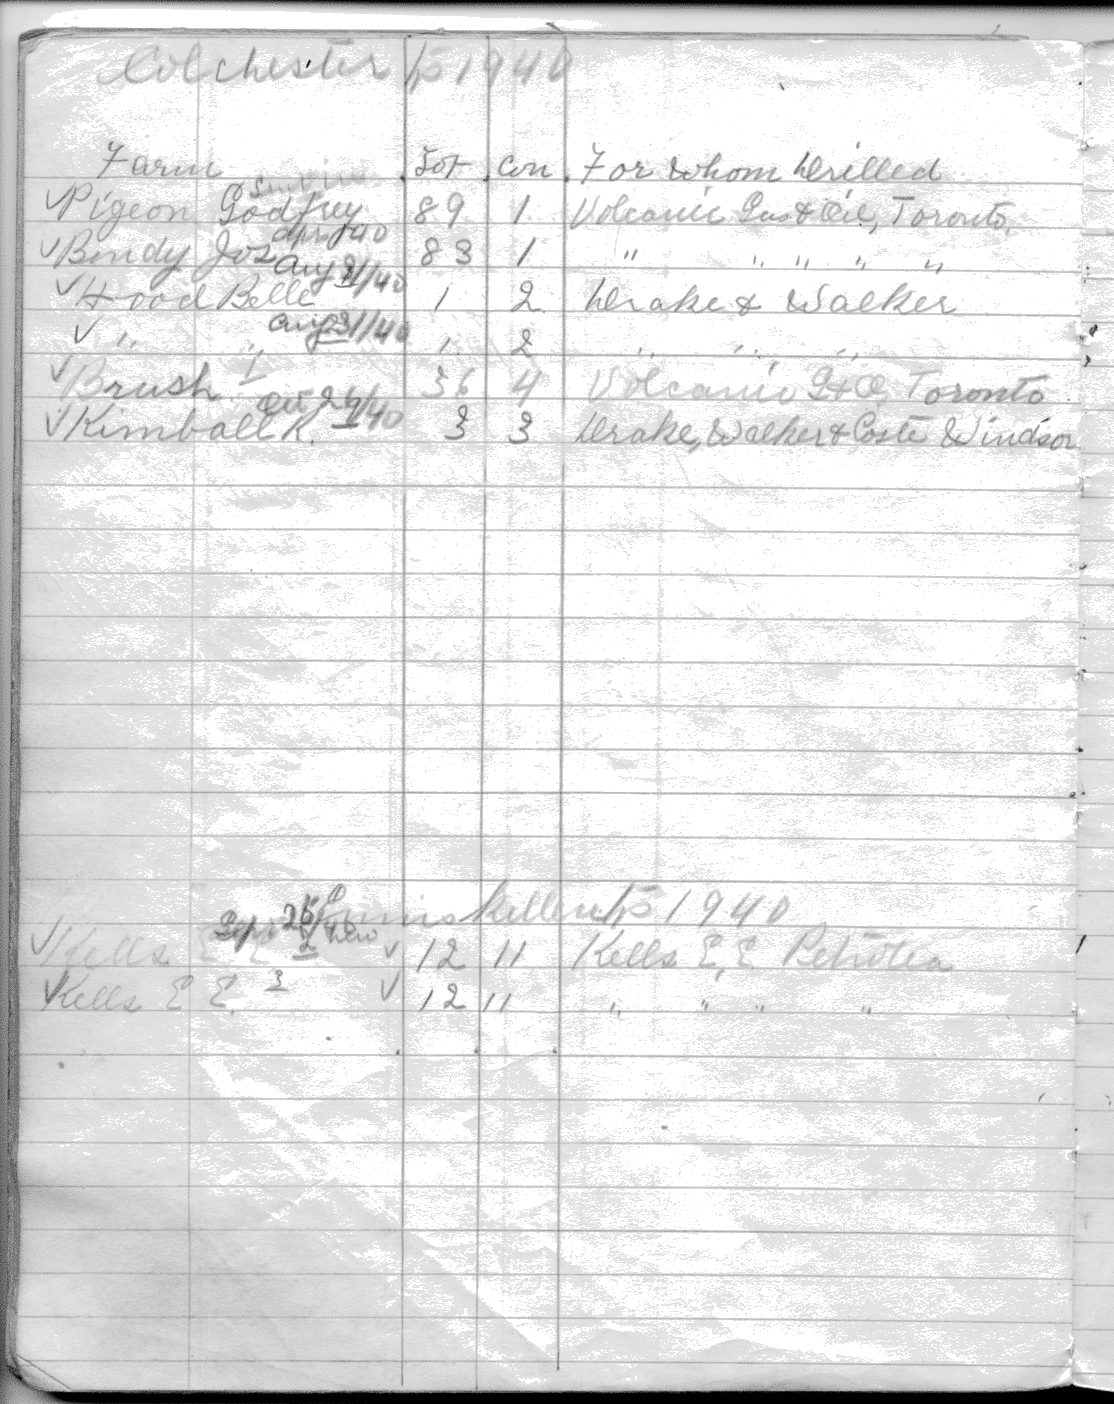 Colchester tp 1940
Farm Lot Con For Whom Drilled
✓ Pigeon Godfrey 89 1 Volcanic Gas & Oil, Toronto.
✓ Bondy Jos 83 1 " " " " "
Aug 21/40
✓ Hood Belle 1 2 Drake & Walker
Aug 31/40
✓ " " 1 2 " " "
✓ Brush 1 36 4 Volcanic G & O, Toronto
Oct 26/40
✓ Kimball R. 1 3 3 Drake, Walker & Coste Windsor
Enniskillen tp 1940
Sep. 26/40
✓ Kells E E 2 new ✓ 12 11 Kells E, E Petrolea
✓ Kells E E. 3 ✓ 12 11 " " " "